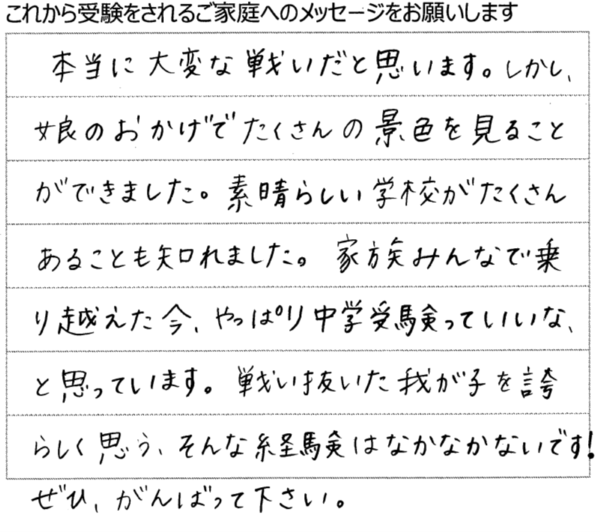 これから受験をされるご家庭へのメッセージをお願いします
本当に大変な戦いだと思います。しかし、
娘のおかげでたくさんの景色を見ること
ができました。素晴らしい学校がたくさん
あることも知れました。家族みんなで乗
り越えた今、やっぱり中学受験っていいな、
と思っています。戦い抜いた我が子を誇
らしく思う、そんな経験はなかなかないです!
ぜひ、がんばって下さい。